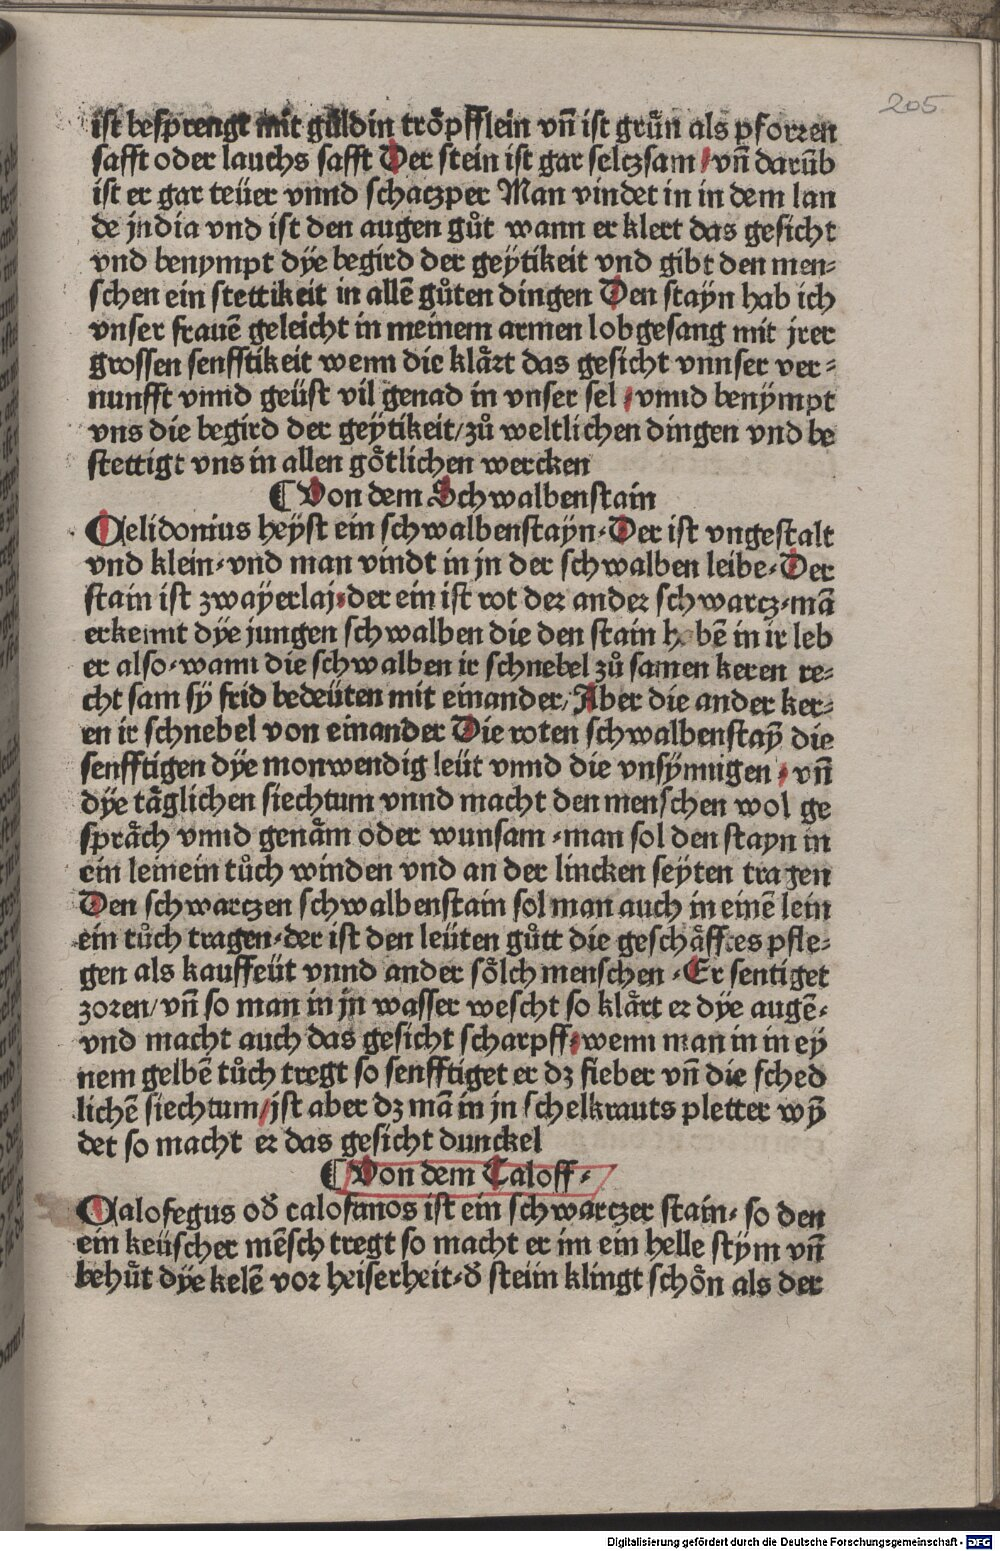 205
ist besprengt mit guͤldin troͤpfflein vñ ist gruͤn als pforren
safft oder lauchs safft Der stein ist gar seltzsam / vñ daruͤb
ist er gar teüer vnnd schatzper Man vindet in in dem lan
de jndia vnd ist den augen guͦt wann er klert das gesicht
vnd benympt dÿe begird der geÿtikeit vnd gibt den men⸗
schen ein stettikeit in allē guͦten dingen Den staÿn hab ich
vnser frauē geleicht in meinem armen lobgesang mit jrer
grossen sensstikeit wenn die klaͤrt das gesicht vnnser ver⸗
nunfft vnnd geüst vil genad in vnser sel / vnnd benÿmpt
vns die begird der geÿtikeit / zuͦ weltlichen dingen vnd be
stettigt vns in allen goͤtlichen wercken
¶ Von dem Schwalbenstain
Celidonius heÿst ein schwalbenstaÿn. Der ist vngestalt
vnd klein. vnd man vindt in jn der schwalben leibe. Der
stain ist zwaÿerlaj. der ein ist rot der ander schwartz. mā
erkennt dÿe jungen schwalben die den stain habē in ir leb
er also. wann die schwalben ir schnebel zuͦ samen keren re⸗
cht sam sÿ frid bedeüten mit einander / Aber die ander ker⸗
en ir schnebel von einander Die roten schwalbenstaÿ̄ die
senfftigen dÿe monwendig leüt vnnd die vnsÿnnigen / vñ
dÿe taͤglichen siechtum vnnd macht den menschen wol ge
spraͤch vnnd genaͤm oder wunsam. man sol den stayn in
ein leinein tuͦch winden vnd an der lincken seÿten tragen
Den schwartzen schwalbenstain sol man auch in einē lein
ein tuͦch tragen. der ist den leüten guͦtt die geschaͤfftes pfle⸗
gen als kauffeüt vnnd ander soͤlch menschen. Er sentiget
zoren / vñ so man in jn wasser wescht so klaͤrt er dÿe augē.
vnd macht auch das gesicht scharpff. wenn man in in ey
nem gelbē tuͦch tregt so senfftiget er dz fieber vñ die sched
lichē siechtum / jst aber dz mā in jn schelkrauts pletter wÿ̄
det so macht er das gesicht dunckel
¶ Von dem Caloff.
Calofegus od̄ calofanos ist ein schwartzer stain. so den
ein keüscher mēsch tregt so macht er im ein helle stÿm vñ
behuͤt dÿe kelē vor heiserheit. d̄ steiin klingt schoͤn als der
Digitalisierung gefördert durch die Deutsche Forschungsgemeinschaft - DFG